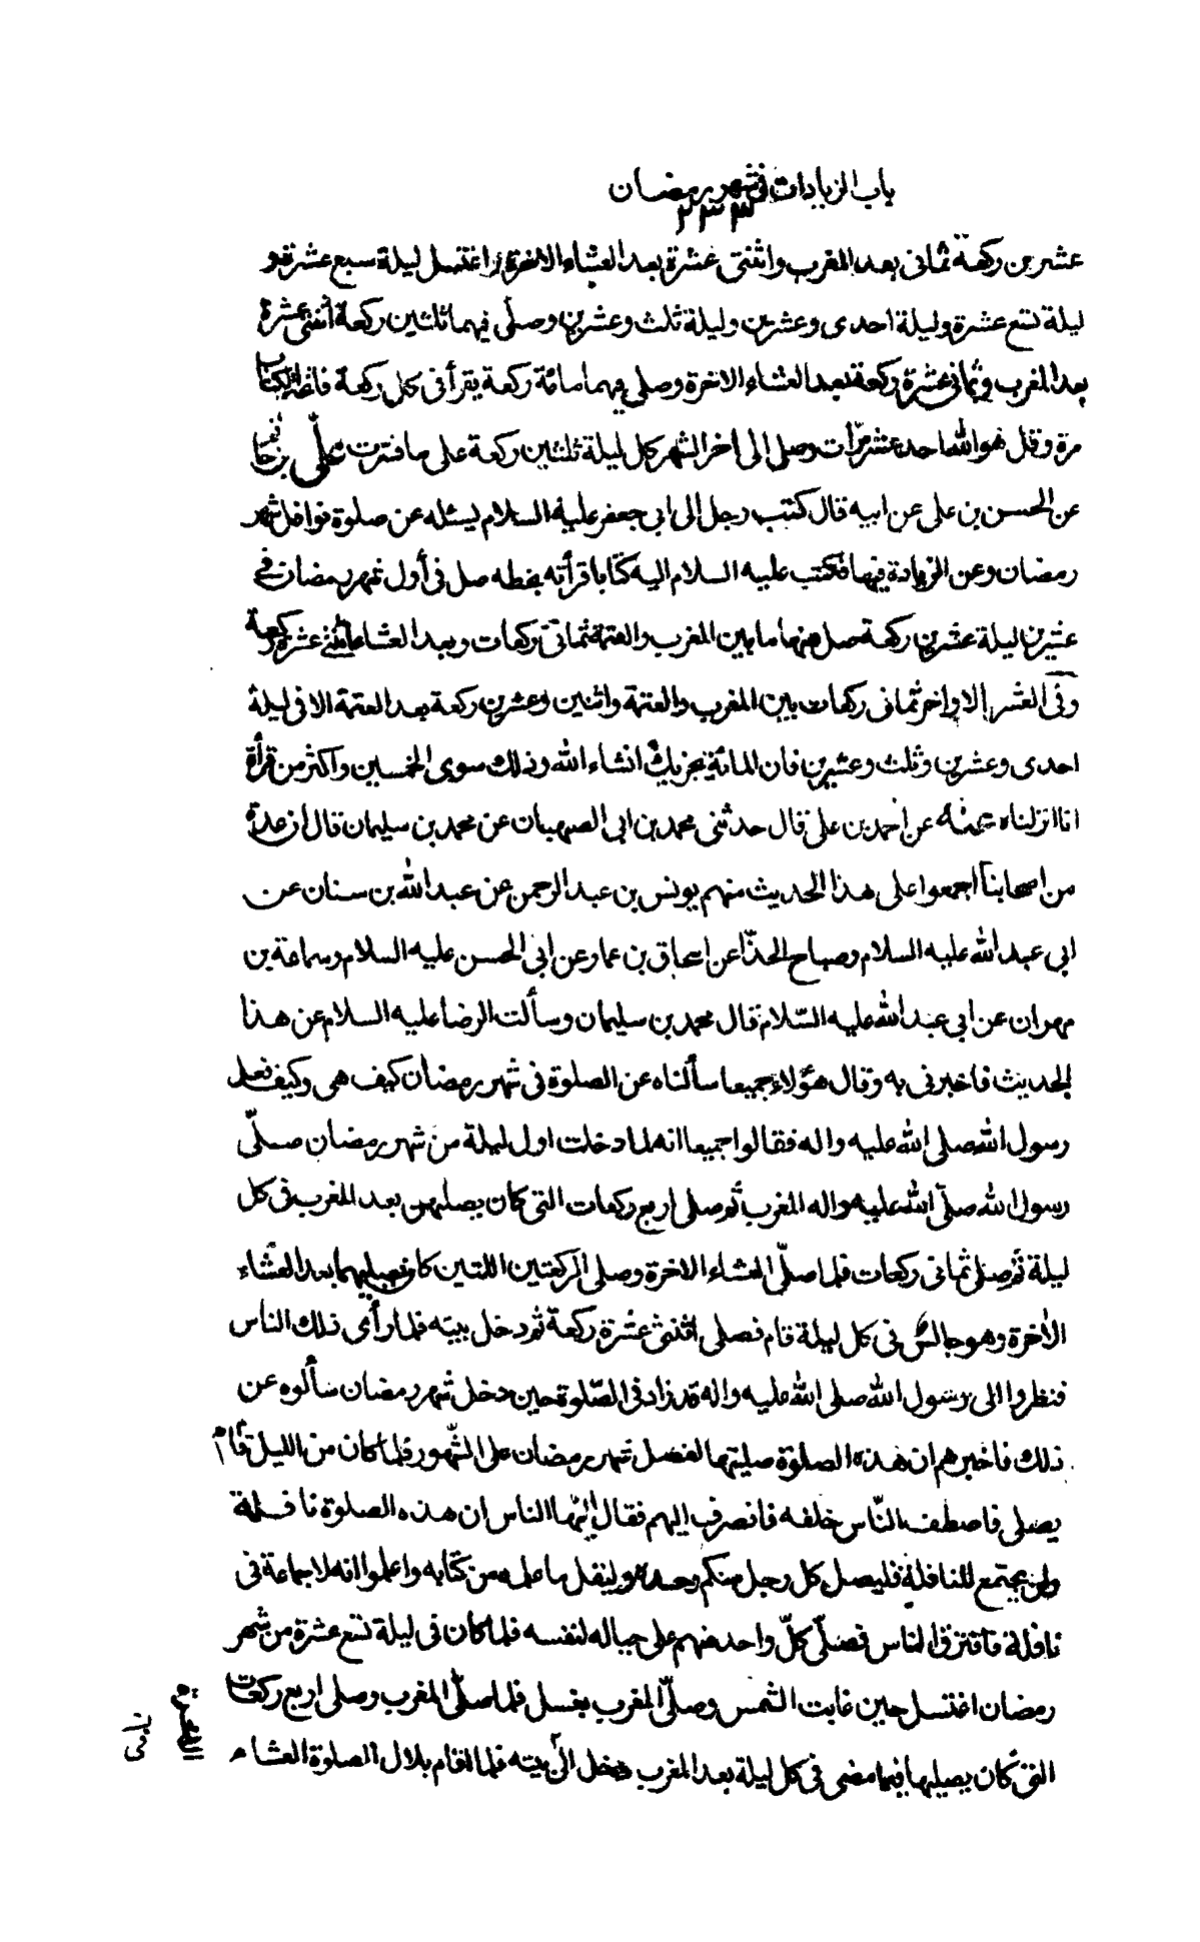 باب الزيادات في شهر رمضان
٢٣٣
عشرين ركعة ثماني بعد المغرب واثنتي عشرة بعد العشاء الاخرة واغتسل ليلة سبع عشرة و
ليلة تسع عشرة وليلة احدى وعشرين وليلة ثلث وعشرين وصلّى فيهما ثلثين ركعة اثنتي عشرة
بعد المغرب وثماني عشرة ركعة بعد العشاء الاخرة وصلى فيهما مائة ركعة يقرأ في كل ركعة فاتحة الكتاب
مرة وقل هو الله احد عشر مرّات وصلى الى اخر الشهر كل ليلة ثلثين ركعة على ما فسرت علّي بن حاتم
عن الحسن بن على عن ابيه قال كتب رجل الى ابي جعفر عليه السلام يسئله عن صلوة نوافل شهر
رمضان وعن الزيادة فيها فكتب عليه السلام اليه كتابا قرأته بخطه صل في أول شهر رمضان في
عشرين ليلة عشرين ركعة صل منها ما بين المغرب والعتمة ثماني ركعات وبعد العشاء اثنتي عشرة ركعة
وفي العشر الاواخر ثماني ركعات بين المغرب والعتمة واثنتين وعشرين ركعة بعد العتمة الا في ليلة
احدى وعشرين وثلث وعشرين فان المائة تجزيك انشاء الله وذلك سوى الخمسين واكثر من قرأة
انا انزلناه عنه عن احمد بن على قال حدثنى محمد بن ابى الصهبان عن محمد بن سليمان قال ان عدة
من اصحابنا اجمعوا على هذا الحديث منهم يونس بن عبد الرحمن عن عبد الله بن سنان عن
ابي عبد الله عليه السلام وصباح الحذّاء عن اسحاق بن عمار عن ابي الحسن عليه السلام وسماعة بن
مهران عن ابي عبد الله عليه السّلام قال محمد بن سليمان وسألت الرضا عليه السلام عن هذا
الحديث فاخبرنى به وقال هؤلاء جميعا سألناه عن الصلوة في شهر رمضان كيف هى وكيف فعل
رسول الله صلى الله عليه واله فقالوا جميعا انه لما دخلت اول ليلة من شهر رمضان صلّى
رسول الله صلّى الله عليه واله المغرب ثم صلى اربع ركعات التى كان يصليهن بعد المغرب في كل
ليلة ثم صلى ثمانى ركعات فلما صلّى العشاء الاخرة وصلى الركعتين اللتين كان يصليهما بعد العشاء
الاخرة وهو جالس في كل ليلة قام فصلى اثنتى عشرة ركعة ثم دخل بيته فلما رأى ذلك الناس
فنظروا الى رسول الله صلى الله عليه واله قد زاد في الصّلوة حين دخل شهر رمضان سألوه عن
ذلك فاخبرهم ان هذه الصلوة صليتها لفضل شهر رمضان على الشّهور فلما كان من الليل قام
يصلى فاصطف النّاس خلفه فانصرف اليهم فقال ايّها الناس ان هذه الصلوة نافلة
ولن يجتمع للنافلة فليصل كل رجل منكم وحده وليقل ما علمه من كتابه واعلموا انه لا جماعة في
نافلة فافترق الناس فصلّى كلّ واحد منهم على حياله لنفسه فلما كان في ليلة تسع عشرة من شهر
رمضان اغتسل حين غابت الشمس وصلّى المغرب بغسل فلما صلّى المغرب وصلى اربع ركعات
التى كان يصليها فيما مضى في كل ليلة بعد المغرب دخل الى بيته فلما اقام بلال الصلوة العشاء